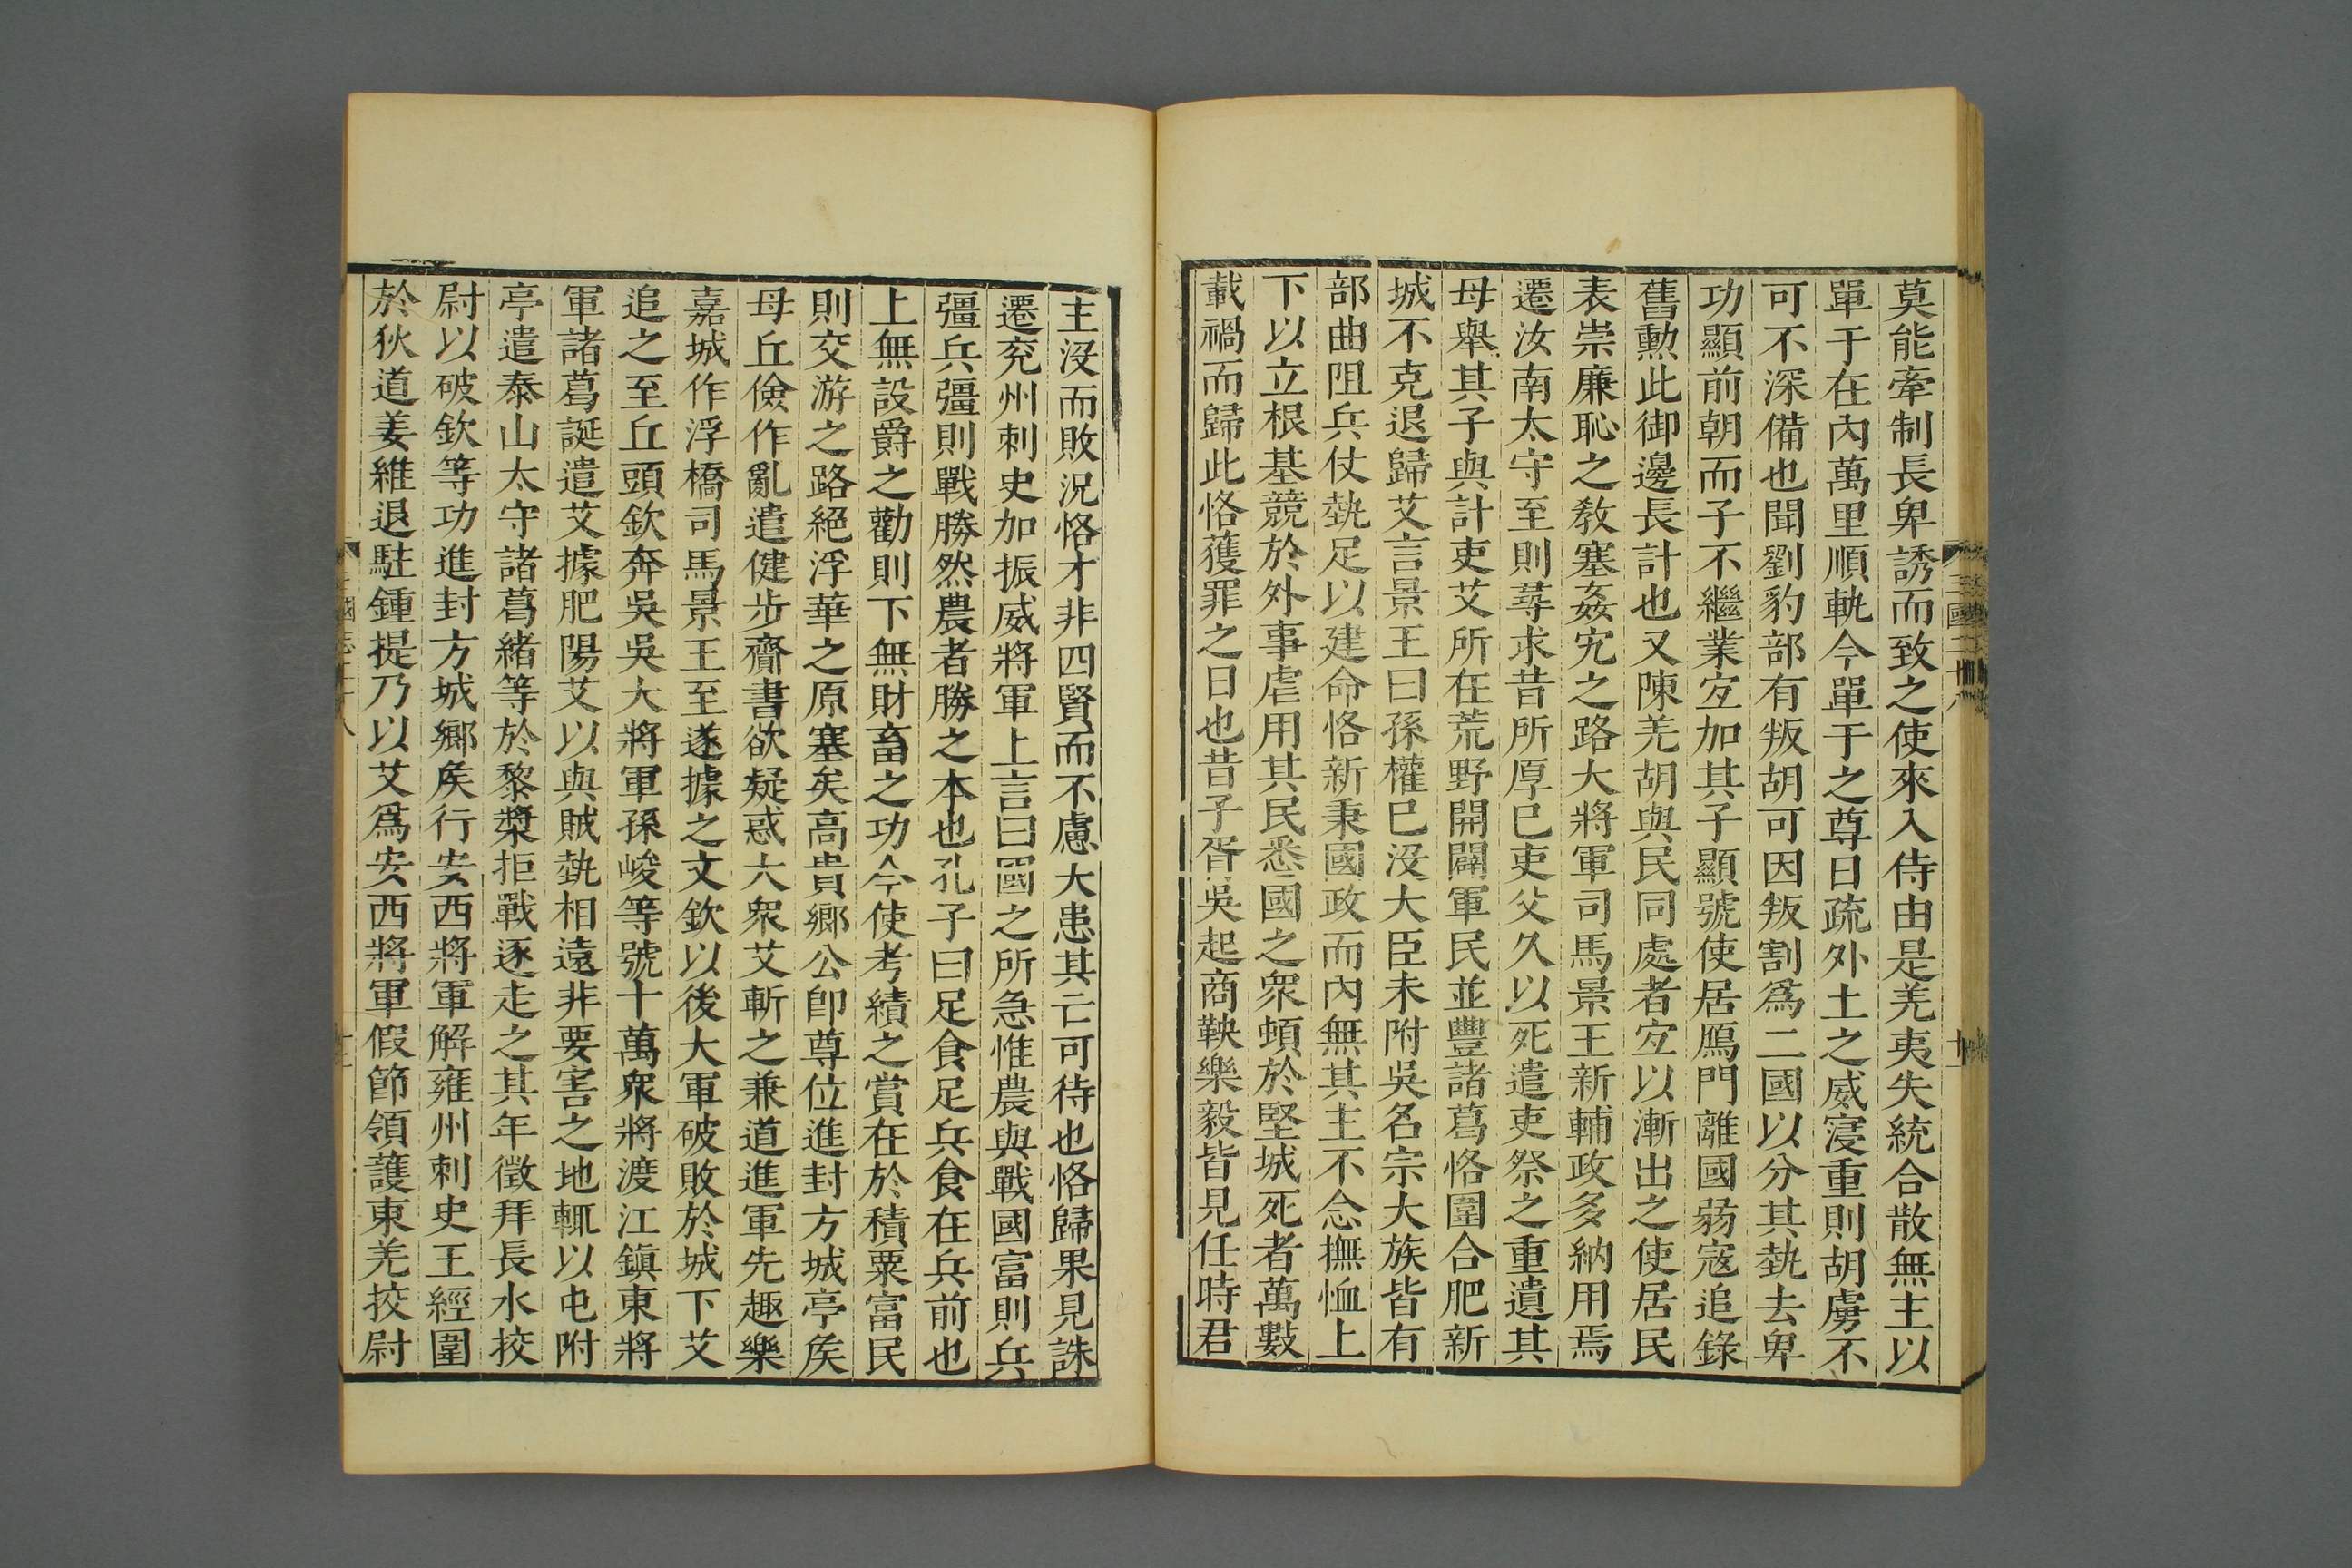 莫能牽制長卑誘而致之使來入侍由是羌夷失統合散無主以
單于在內萬里順軌今單于之尊日疏外土之威寖重則胡虜不
可不深備也聞劉豹部有叛胡可因叛割爲二國以分其埶去卑
功顯前朝而子不繼業宐加其子顯號使居鴈門離國弱寇追錄
舊勳此御邊長計也又陳羌胡與民同處者宐以漸出之使居民
表崇廉恥之教塞姦宄之路大將軍司馬景王新輔政多納用焉
遷汝南太守至則尋求昔所厚己吏父久以死遣吏祭之重遺其
母舉其子與計吏艾所在荒野開闢軍民並豐諸葛恪圍合肥新
城不克退歸艾言景王曰孫權已沒大臣未附吳名宗大族皆有
部曲阻兵仗埶足以建命恪新秉國政而內無其主不念撫恤上
下以立根基競於外事虐用其民悉國之眾頓於堅城死者萬數
載禍而歸此恪獲罪之日也昔子胥吳起商鞅樂毅皆見任時君
三國二十八
主沒而敗況恪才非四賢而不慮大患其亡可待也恪歸果見誅
遷兖州刺史加振威將軍上言曰國之所急惟農與戰國富則兵
彊兵彊則戰勝然農者勝之本也孔子曰足食足兵食在兵前也
上無設爵之勸則下無財畜之功今使考績之賞在於積粟富民
則交游之路絕浮華之原塞矣高貴鄉公卽尊位進封方城亭矦
毋丘儉作亂遣健步齎書欲疑惑大眾艾斬之兼道進軍先趣樂
嘉城作浮橋司馬景王至遂據之文欽以後大軍破敗於城下艾
追之至丘頭欽奔吳吳大將軍孫峻等號十萬眾將渡江鎮東將
軍諸葛誕遣艾據肥陽艾以與賊埶相遠非要害之地輒以屯附
亭遣泰山太守諸葛緒等於黎漿拒戰逐走之其年徵拜長水挍
尉以破欽等功進封方城鄉矦行安西將軍解雍州刺史王經圍
於狄道姜維退駐鍾提乃以艾爲安西將軍假節領護東羌挍尉